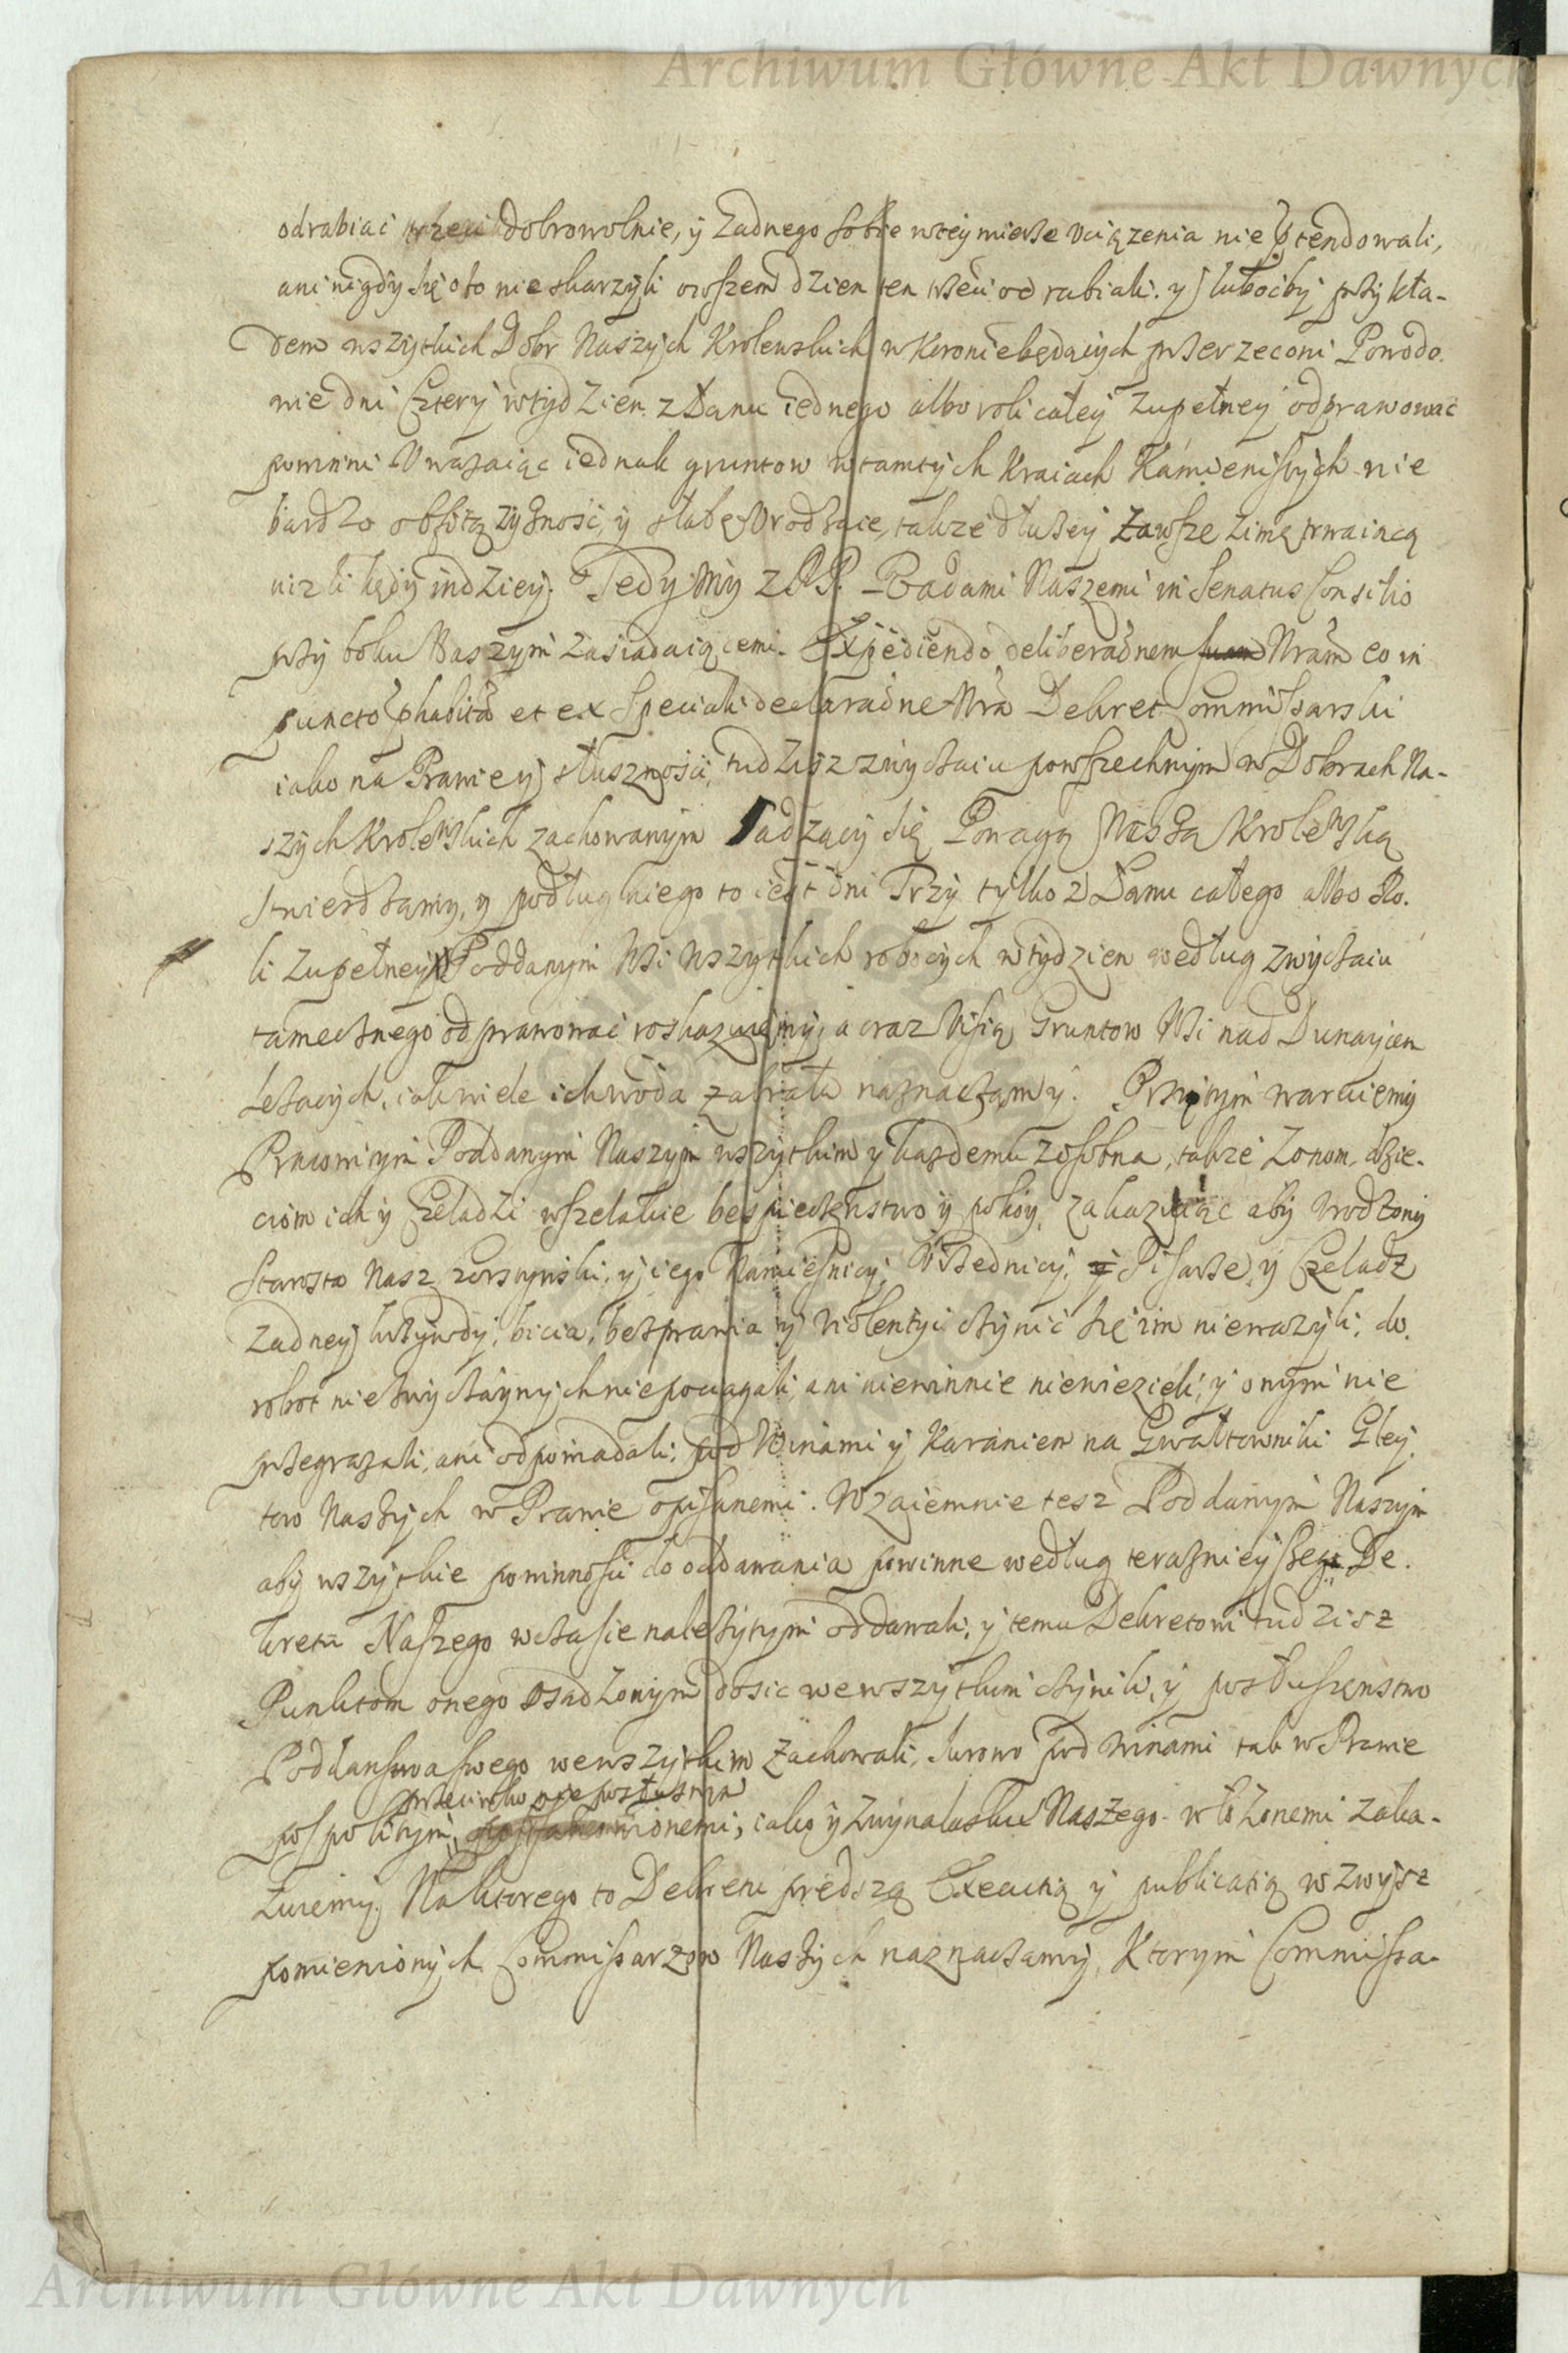 Archiwum Główne Akt Dawnych
odrabiać trzeci dobrowolnie, y Zadnego sobie wtey mierze Uciążenia nie ptendowali,
ani nigdy się oto nie skarzyli owszem dzien ten trzeci odrabiali. y luboćby przykła-
dem wszytkich Dobr Naszych Krolewskich w Koronie będących przerzeconi Powodo-
wie dni Cztery w tydzien z Łanu iednego albo roli całey zupełney odprawować
powinni Uważaiąc iednak gruntow w tamtych Kraiach Kamienistych nie
bardzo obfitą zyzność, y słabe Urodzaie, także dłuzey zawsze zimę trwaiącą
nizli kędy indziey. Tedy My z PP. Radami Naszemi in Senatus Consilio
przy boku Naszym zasiadaiącemi. Expediendo deliberaonem suam Nram eo in
puncto phabita et ex speciali declaraone Nra Dekret Commissarski
iako na Prawie y słuszności, tudzisz zwyczaiu powszechnym w Dobrach Na-
szych Krolewskich zachowanym sadzący się Powagą Naszą Krolewską
stwierdzamy, y podług niego to iest dni Trzy tylko z Łanu całego albo Ro-
li zupełney Poddanym Wsi wszytkich robocych w tydzien według zwyczaiu
tamecznego odprawować roskazuiemy, a oraz Wsią Gruntow Wsi nad Dunaycem
Lezacych, iak wiele ich woda zabrała naznaczamy. Przytym waruiemy
Pracowitym Poddanym Naszym wszytkim y kazdemu zosobna, także Zonom, dzie-
ciom ich y Czeladzi wszelakie bespieczenstwo y pokoy, zakazuiąc aby Urodzony
Starosta Nasz czorsztynski, y iego Namiesnicy, Urzednicy, y Pisarze, y Czeladz
Zadney krzywdy, bicia, bezprawia y violentyi czynić się im niewazyli, do
robot niezwyczaynych niepociągali, ani niewinnie niewiezieli, y onym nie
przegrazali, ani odpowiadali, pod Winami y Karaniem na Gwałtowniki Gley-
tow Naszych w Prawie opisanemi. Wzaiemnie tesz Poddanym Naszym
aby wszytkie powinnosci do oddawania powinne według teraznieyszego De-
kretu Naszego w czasie nalezytym oddawali, y temu Dekretowi tudzisz
Punktom onego osadzonym dosic we wszytkim czynili, y posłuszenstwo
Poddanstwa swego wewszytkim zachowali, surowo pod winami tak w Prawie
przeciwko nieposłusznym
pospolitym, iako y zwynalasku Naszego włozonemi zaka-
zuiemy. Na ktorego to Dekretu prędszą Execucią y publicatią wzwysz
pomienionych Commissarzow Naszych naznaczamy, Ktorym Commissa-
Archiwum Główne Akt Dawnych